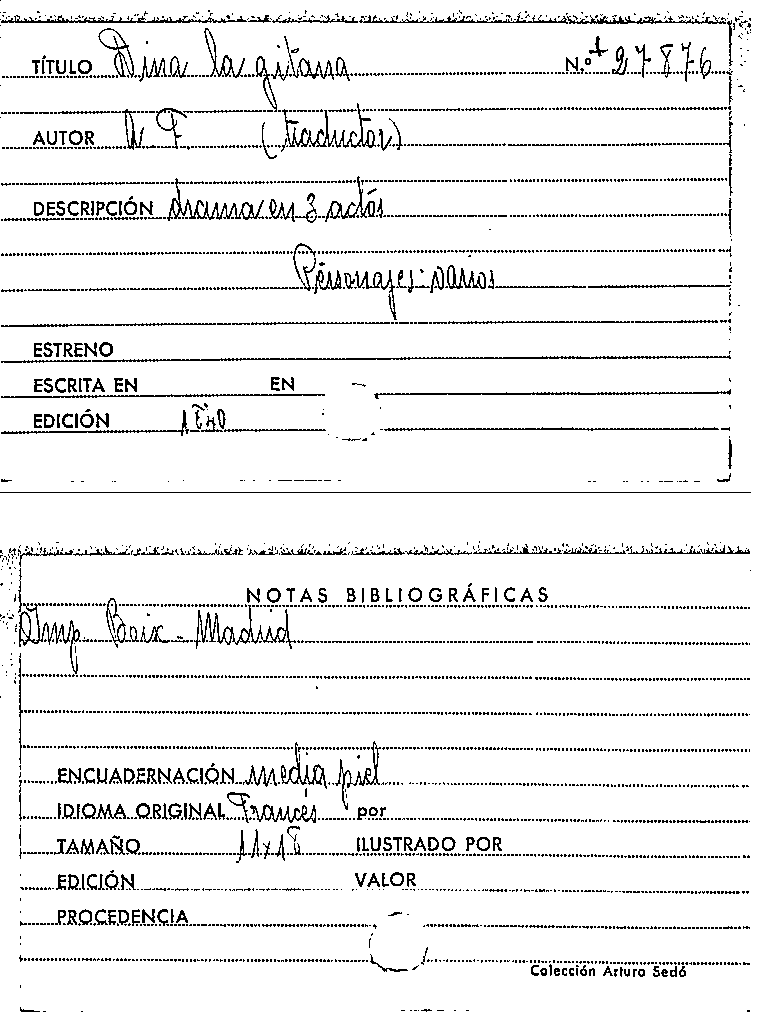 TÍTULO Dina la gitana N.º 27876
AUTOR A. F. (traductor)
DESCRIPCIÓN drama en 3 actos
Personajes: varios
ESTRENO
ESCRITA EN EN
EDICIÓN
NOTAS BIBLIOGRÁFICAS
Imp. Boix - Madrid
ENCUADERNACIÓN media piel
IDIOMA ORIGINAL Francés por
TAMAÑO 11x18 ILUSTRADO POR
EDICIÓN VALOR
PROCEDENCIA
Colección Arturo Sedó